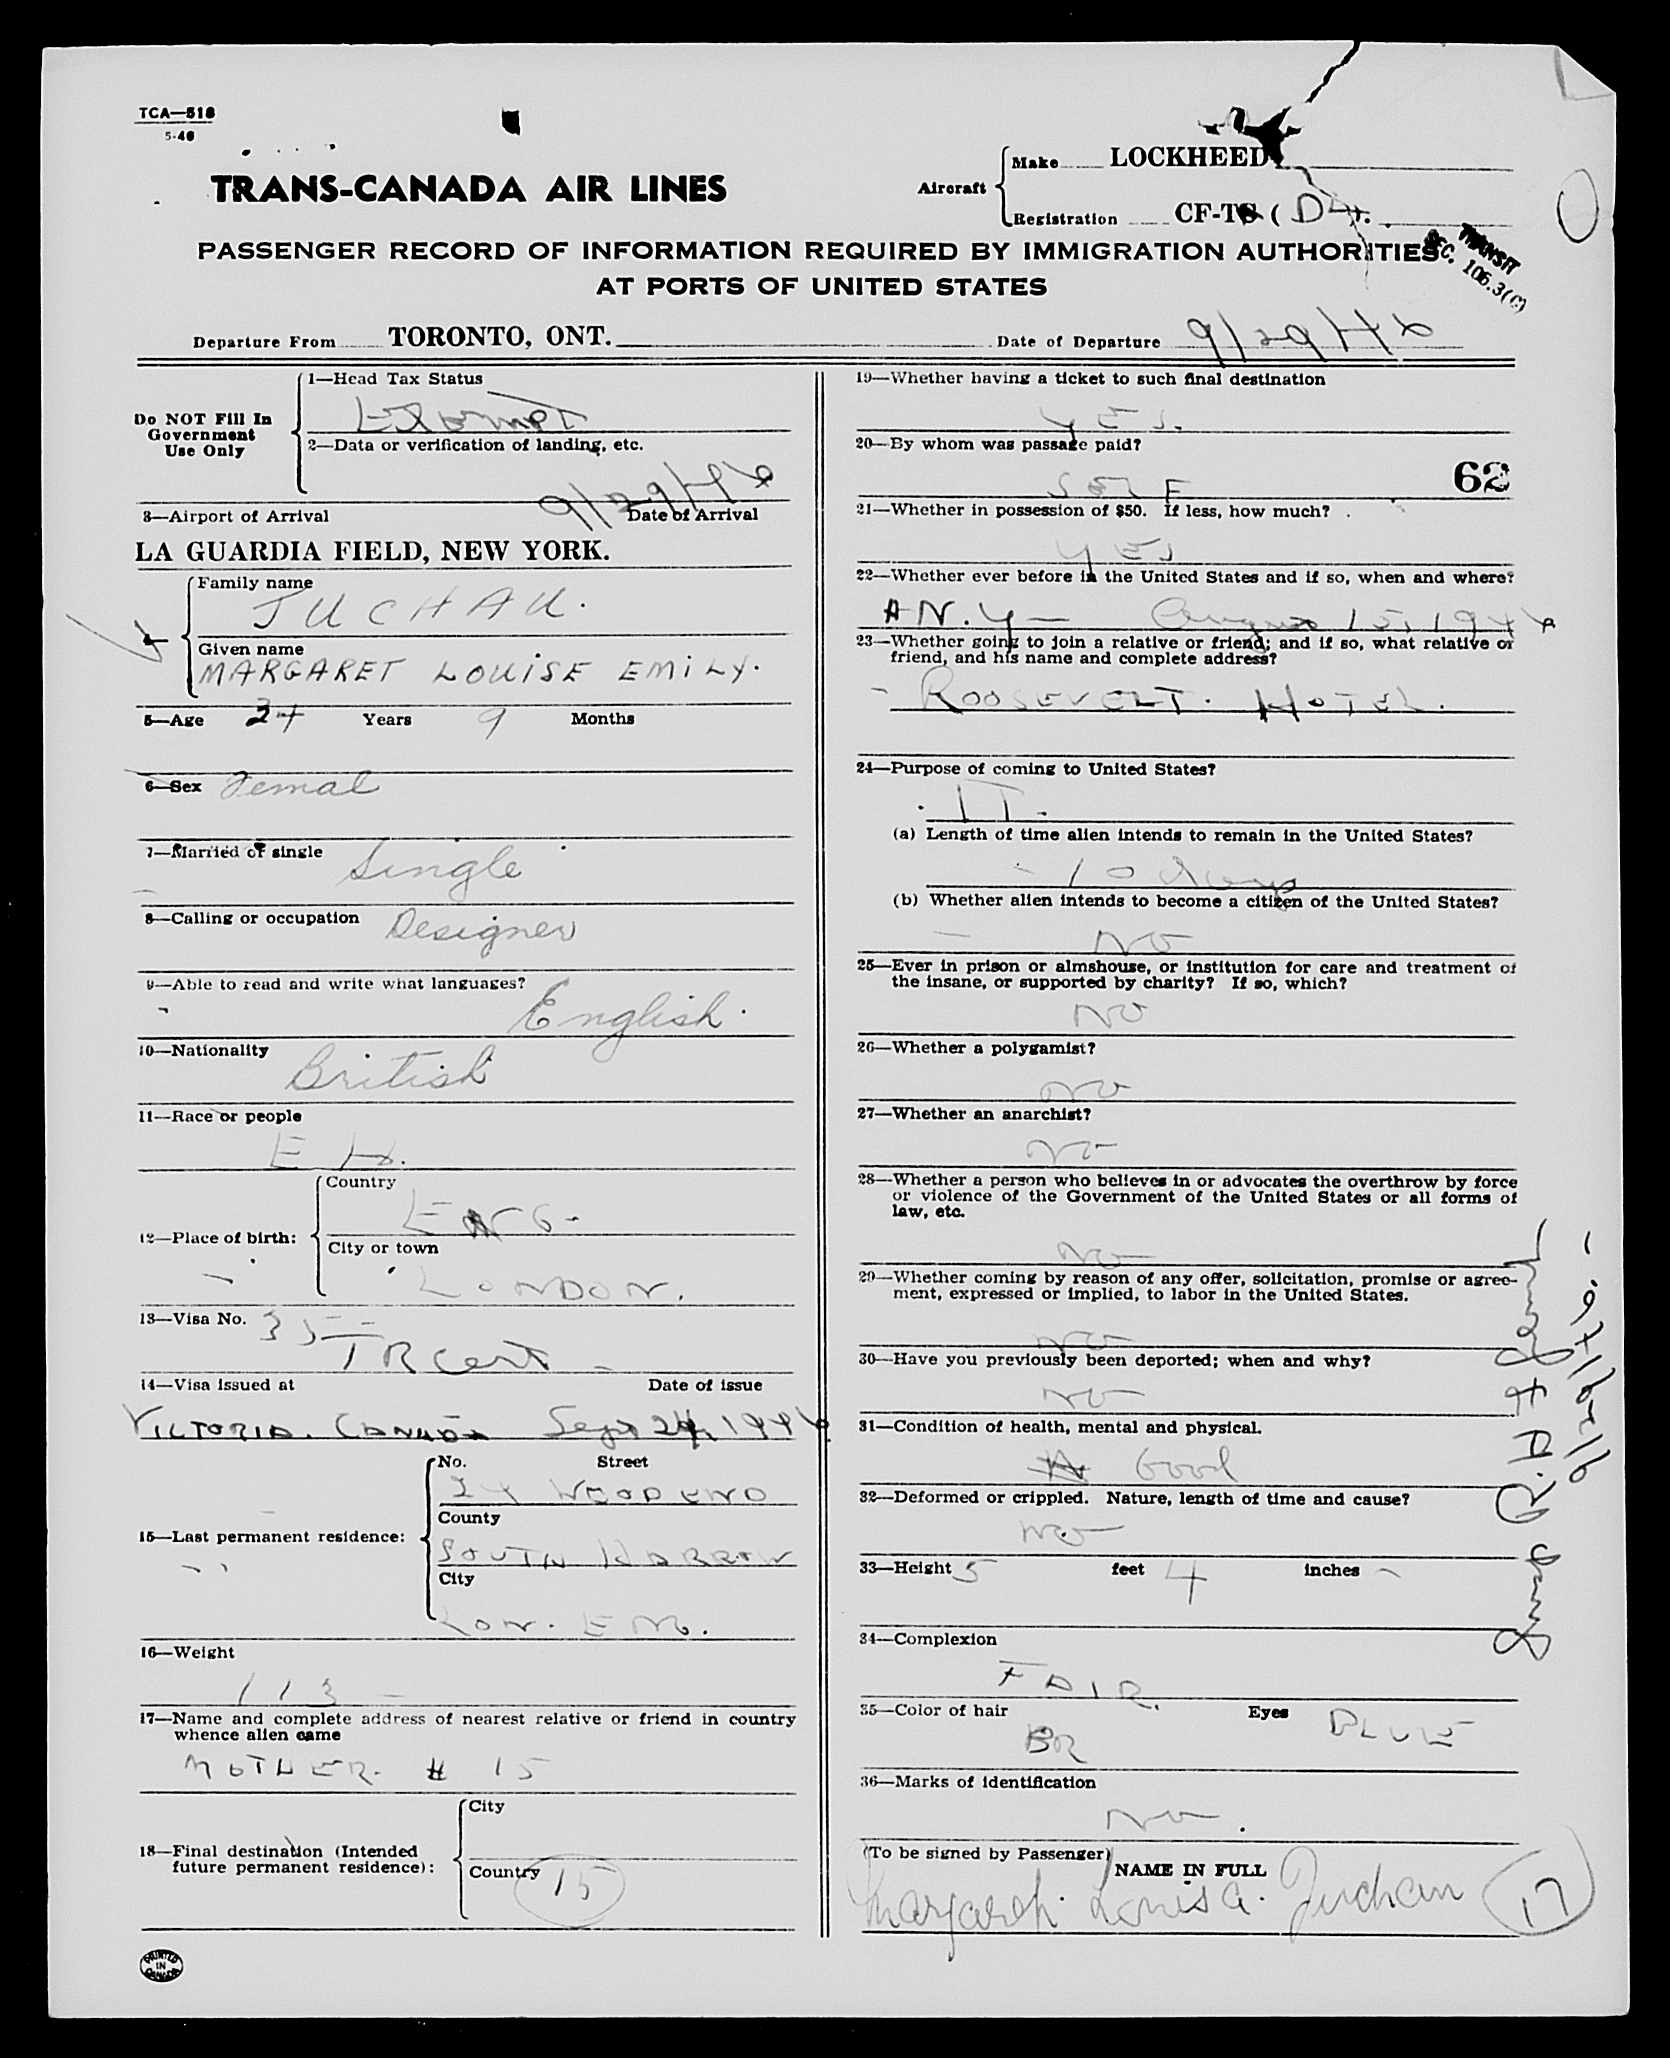 TCA—518
5-46
TRANS-CANADA AIR LINES
Aircraft
Make LOCKHEED
Registration CF-T ( D
PASSENGER RECORD OF INFORMATION REQUIRED BY IMMIGRATION AUTHORITIES
AT PORTS OF UNITED STATES
TRANSIT
SEC. 106.3(C)
Departure From TORONTO, ONT. Date of Departure 9/29/46
Do NOT Fill In
Government
Use Only
1—Head Tax Status
Exempt
2—Data or verification of landing, etc.
9/29/46
3—Airport of Arrival Date of Arrival
LA GUARDIA FIELD, NEW YORK.
Family name
JUCHAU.
Given name
MARGARET LOUISE EMILY.
5—Age 24 Years 9 Months
6—Sex Femal
7—Married or single Single
8—Calling or occupation Designer
9—Able to read and write what languages?
English.
10—Nationality
British
11—Race or people
12—Place of birth:
Country
ENG-
City or town
LONDON.
13—Visa No. 355
TR Cert -
14—Visa issued at Date of issue
VICTORIA. CANADA Sept 24, 1946
15—Last permanent residence:
No. Street
24 WOOD END
County
SOUTH HARROW
City
LON. ENG.
16—Weight
113 -
17—Name and complete address of nearest relative or friend in country
whence alien came
MOTHER. # 15
18—Final destination (Intended
future permanent residence):
City
Country
15
PRINTED
IN
CANADA
19—Whether having a ticket to such final destination
YES.
20—By whom was passage paid?
62
SELF
21—Whether in possession of $50. If less, how much?
YES
22—Whether ever before in the United States and if so, when and where?
N.Y— August 15, 1946
23—Whether going to join a relative or friend; and if so, what relative or
friend, and his name and complete address?
- ROOSEVELT. HOTEL.
24—Purpose of coming to United States?
(a) Length of time alien intends to remain in the United States?
- 10 days
(b) Whether alien intends to become a citizen of the United States?
- NO
25—Ever in prison or almshouse, or institution for care and treatment of
the insane, or supported by charity? If so, which?
NO
26—Whether a polygamist?
NO
27—Whether an anarchist?
NO
28—Whether a person who believes in or advocates the overthrow by force
or violence of the Government of the United States or all forms of
law, etc.
NO
29—Whether coming by reason of any offer, solicitation, promise or agree-
ment, expressed or implied, to labor in the United States.
NO
30—Have you previously been deported; when and why?
NO
31—Condition of health, mental and physical.
Good
32—Deformed or crippled. Nature, length of time and cause?
NO
33—Height 5 feet 4 inches -
34—Complexion
FAIR.
35—Color of hair BR Eyes BLUE
36—Marks of identification
NO.
(To be signed by Passenger)
NAME IN FULL
Margaret. Louisa. Juchau
17
9/29/46.-